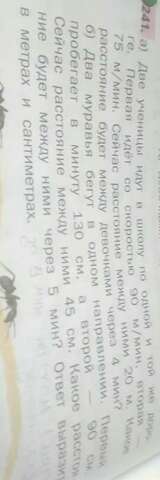 241. а) Две ученицы идут в школу по одной и той же доро-
ге. Первая идёт со скоростью 90 м/мин, вторая
75 м/мин. Сейчас расстояние между ними 20 м. Какое
расстояние будет между девочками через 4 мин?
б) Два муравья бегут в одном направлении. Первый
пробегает в минуту 130 см, а второй — 90 см.
Сейчас расстояние между ними 45 см. Какое расстоя
ние будет между ними через 5 мин? Ответ вырази
в метрах и сантиметрах.